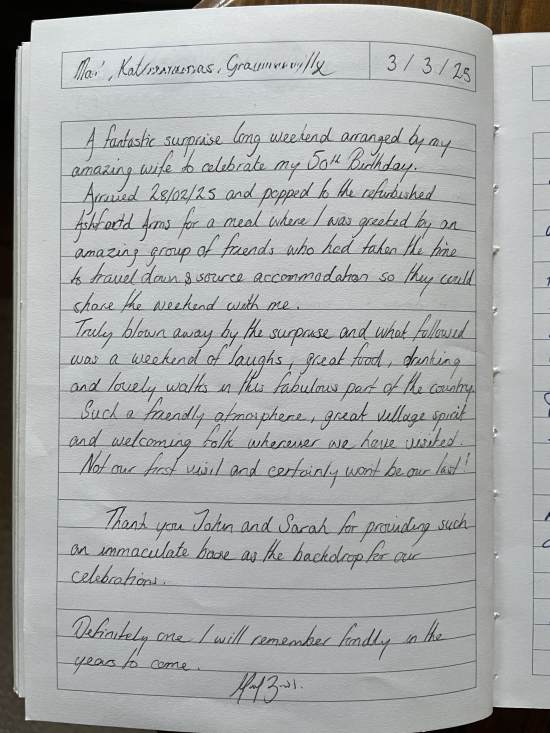 3/3/25
A fantastic surprise long weekend arranged by my
amazing wife to celebrate my 50th Birthday.
Arrived 28/02/25 and popped to the refurbished
Ashford Arms for a meal where I was greeted by an
amazing group of friends who had taken the time
to travel down & source accommodation so they could
share the weekend with me.
Truly blown away by the surprise and what followed
was a weekend of laughs, great food, drinking
and lovely walks in this fabulous part of the country.
Such a friendly atmosphere, great village spirit
and welcoming folk wherever we have visited.
Not our first visit and certainly wont be our last!
Thank you John and Sarah for providing such
an immaculate base as the backdrop for our
celebrations.
Definitely one I will remember fondly in the
years to come.